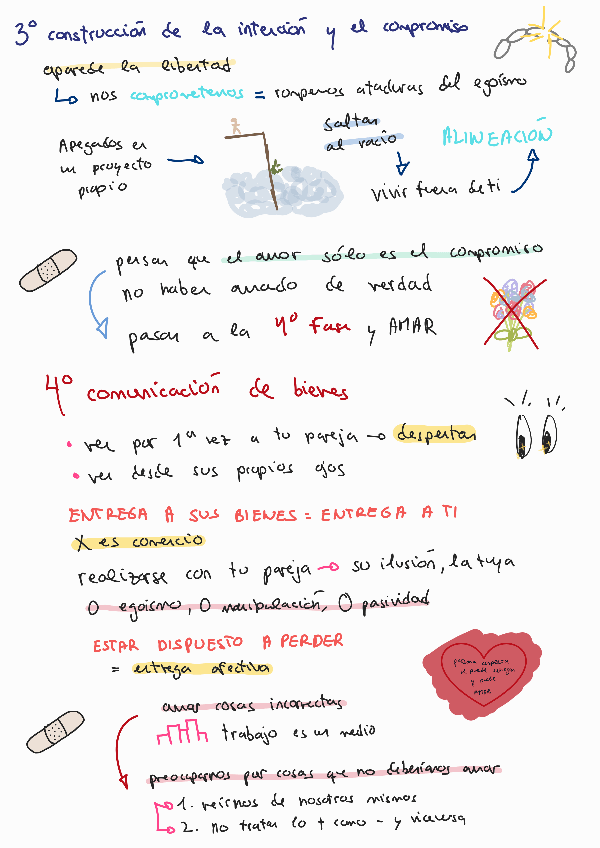 3º construcción de la intención y el compromiso
aparece la libertad
nos comprometemos = rompemos ataduras del egoísmo
Apegados en
un proyecto
propio
saltar
al vacío
vivir fuera de ti
ALINEACIÓN
pensar que el amor sólo es el compromiso
no haber amado de verdad
pasar a la 4º Fase y AMAR
4º comunicación de bienes
• ver por 1ª vez a tu pareja → despertar
• ver desde sus propios ojos
ENTREGA A SUS BIENES = ENTREGA A TI
X es comercio
realizarse con tu pareja → su ilusión, la tuya
0 egoísmo, 0 manipulación, 0 pasividad
ESTAR DISPUESTO A PERDER
= entrega afectiva
y
amar
amar cosas incorrectas
trabajo es un medio
preocuparnos por cosas que no deberíamos amar
1. reírnos de nosotros mismos
2. no tratar lo + como - y viceversa